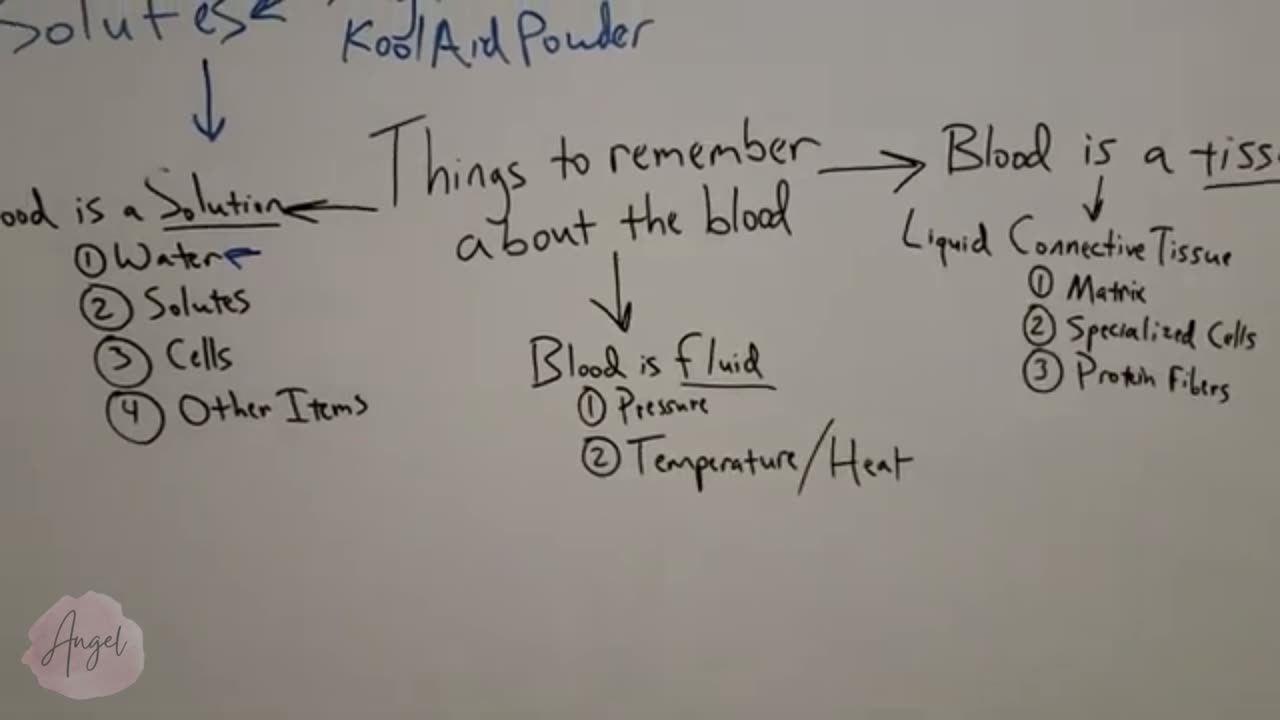 Solutes
Kool Aid Powder
Things to remember
about the blood
ood is a Solution
① Water
② Solutes
③ Cells
④ Other Items
Blood is fluid
① Pressure
② Temperature/Heat
Blood is a tiss
Liquid Connective Tissue
① Matrix
② Specialized Cells
③ Protein Fibers
Angel